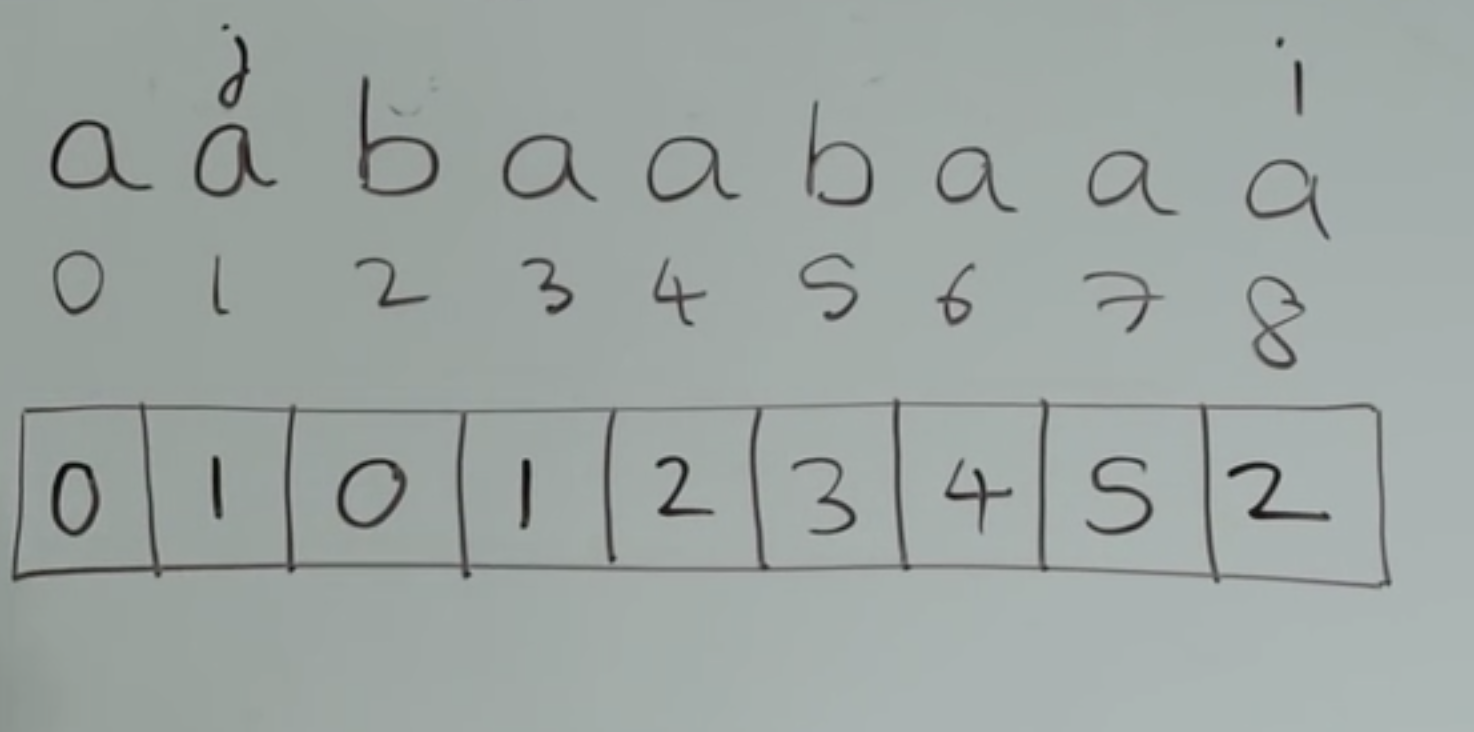 j i
a a b a a b a a a
0 1 2 3 4 5 6 7 8
0 1 0 1 2 3 4 5 2